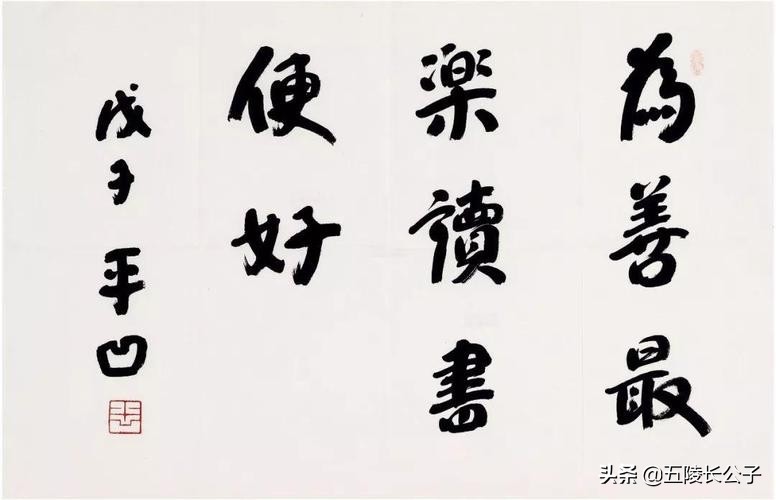 為善最
楽讀書
便好
戊子 平凹
头条 @五陵长公子